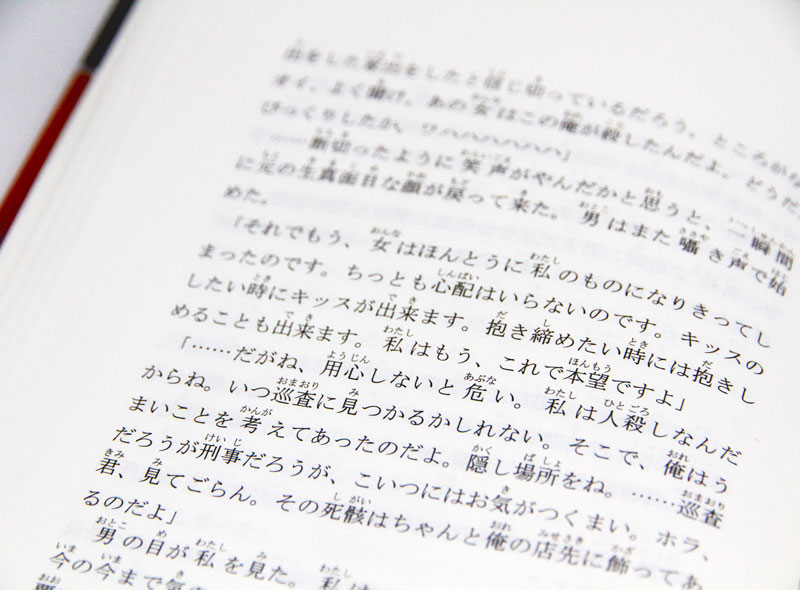 出をした家出をしたと信じ切っているだろう。ところがな
オイ、よく聞け、あの女はこの俺が殺したんだよ。どうだ、
びっくりしたか、ワハハハハハハ」
「……断切ったように笑声がやんだかと思うと、一瞬間
に元の生真面目な顔が戻って来た。男はまた囁き声で始
めた。
「それでもう、女はほんとうに私のものになりきってし
まったのです。ちっとも心配はいらないのです。キッスの
したい時にキッスが出来ます。抱き締めたい時には抱きし
めることも出来ます。私はもう、これで本望ですよ」
「……だがね、用心しないと危い。私は人殺しなんだ
からね。いつ巡査に見つかるかしれない。そこで、俺はう
まいことを考えてあったのだよ。隠し場所をね。……巡査
だろうが刑事だろうが、こいつにはお気がつくまい。ホラ、
君、見てごらん。その死骸はちゃんと俺の店先に飾ってあ
るのだよ」
男の目が私を見た。私は
今の今まで気の